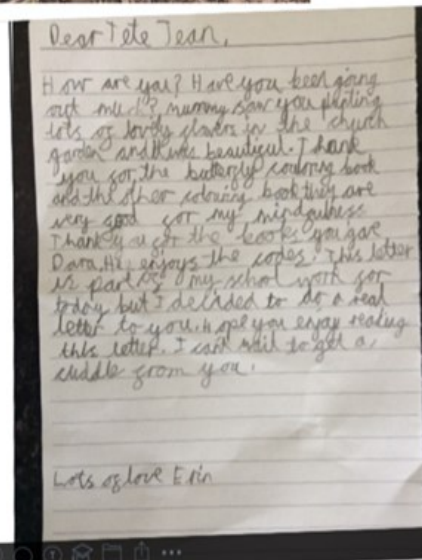 Dear Tete Jean,
How are you? Have you been going
out much? mummy saw you planting
lots of lovely flowers in the church
garden and it was beautiful. Thank
you for the butterfly colouring book
and the other colouring book they are
very good for my mindfulness
Thank you for the books you gave
Dara, He enjoys the codes. This letter
is part of my school work for
today but I decided to do a real
letter to you. hope you enjoy reading
this letter. I cant wait to get a
cuddle from you.
Lots of love Erin